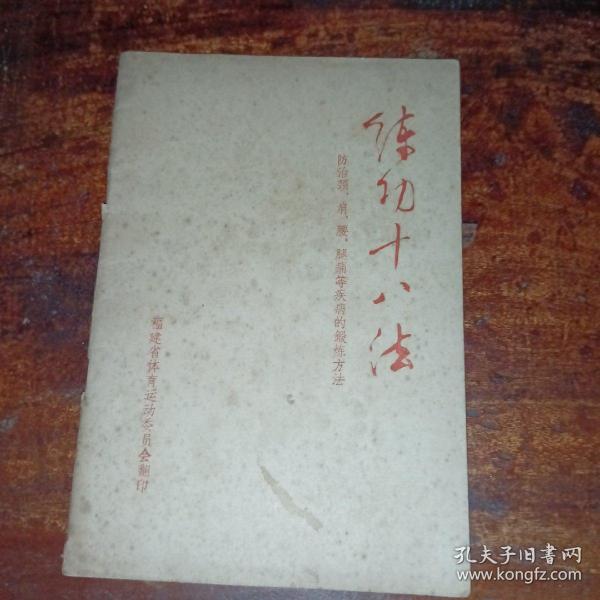 练功十八法
防治颈、肩、腰、腿痛等疾病的锻炼方法
福建省体育运动委员会翻印
孔夫子旧书网
www.kongfz.com